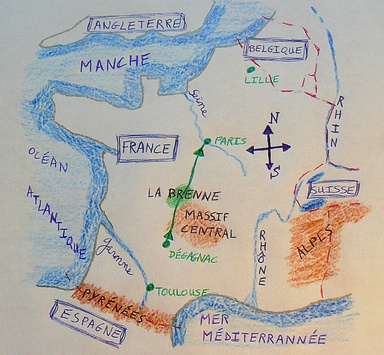 ANGLETERRE
MANCHE
BELGIQUE
LILLE
Seine
RHIN
PARIS
N
S
FRANCE
OCÉAN
ATLANTIQUE
LA BRENNE
SUISSE
MASSIF
CENTRAL
RHÔNE
ALPES
Garonne
DÉGAGNAC
TOULOUSE
PYRÉNÉES
ESPAGNE
MER
MÉDITERRANNÉE